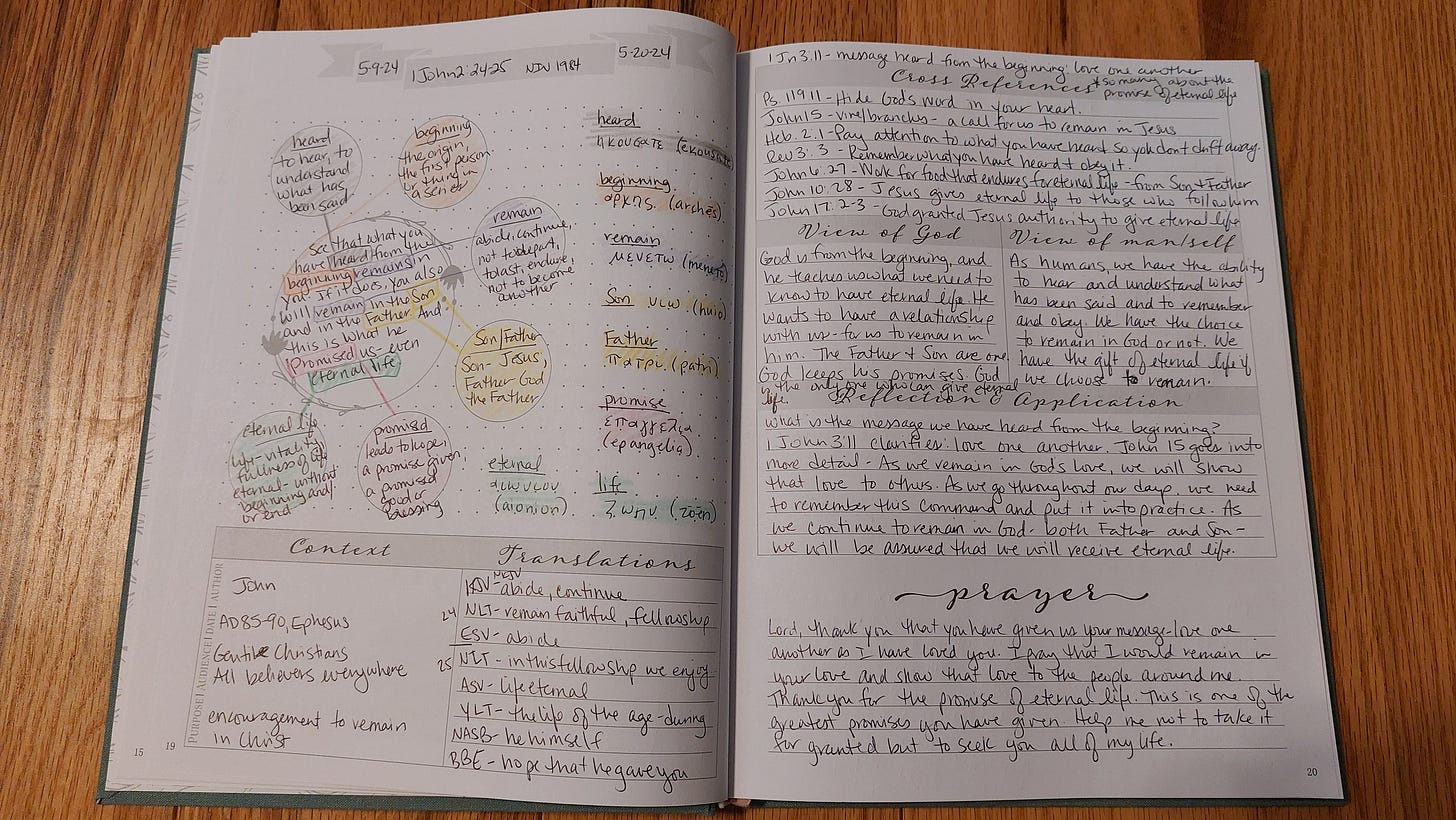 5-9-24
1 John 2:24-25 NIV 1984
5-20-24
heard
to hear, to
understand
what has
been said
beginning
the origin,
the first person
or thing in
a series
remain
abide, continue,
not to depart,
to last, endure,
not to become
another
See that what you
have heard from the
beginning remains in
you. If it does, you also
will remain in the Son
and in the Father. And
this is what he
promised us - even
eternal life
Son/Father
Son - Jesus,
Father God
the Father
eternal life
life - vitality
fullness of life
eternal - without
beginning and/
or end
promised
leads to hope;
a promise given;
a promised
good or
blessing
heard
ηκουσατε (ekousate)
beginning
αρκης. (archēs)
remain
μενετω (menetō)
Son υιω (huiō)
Father
πατρι (patri)
promise
επαγγελια
(epangelia)
eternal
αιωνιον
(aiōnion)
life
ζωην (zōēn)
Context
PURPOSE | AUDIENCE | DATE | AUTHOR
John
AD 85-90, Ephesus
Gentile Christians
All believers everywhere
encouragement to remain
in Christ
Translations
NKJV
- abide, continue
24 NLT - remain faithful, fellowship
ESV - abide
25 NLT - in this fellowship we enjoy
ASV - life eternal
YLT - the life of the age-during
NASB - he himself
BBE - hope that he gave you
15
19
1 Jn 3:11 - message heard from the beginning: love one another
Cross References
*so many about the
promise of eternal life
Ps. 119:11 - Hide God's word in your heart.
John 15 - vine/branches - a call for us to remain in Jesus
Heb. 2:1 - Pay attention to what you have heard so you don't drift away.
Rev 3:3 - Remember what you have heard + obey it.
John 6:27 - Work for food that endures for eternal life - from Son + Father
John 10:28 - Jesus gives eternal life to those who follow him
John 17:2-3 - God granted Jesus authority to give eternal life
View of God
God is from the beginning, and
he teaches us what we need to
know to have eternal life. He
wants to have a relationship
with us - for us to remain in
him. The Father + Son are one.
God keeps his promises. God
is the only one who can give eternal
life.
View of man/self
As humans, we have the ability
to hear and understand what
has been said and to remember
and obey. We have the choice
to remain in God or not. We
have the gift of eternal life if
we choose to remain.
Reflection & Application
What is the message we have heard from the beginning?
1 John 3:11 clarifies: love one another. John 15 goes into
more detail - As we remain in God's love, we will show
that love to others. As we go throughout our days, we need
to remember this command and put it into practice. As
we continue to remain in God - both Father and Son -
we will be assured that we will receive eternal life.
prayer
Lord, thank you that you have given us your message - love one
another as I have loved you. I pray that I would remain in
your love and show that love to the people around me.
Thank you for the promise of eternal life. This is one of the
greatest promises you have given. Help me not to take it
for granted but to seek you all of my life.
20